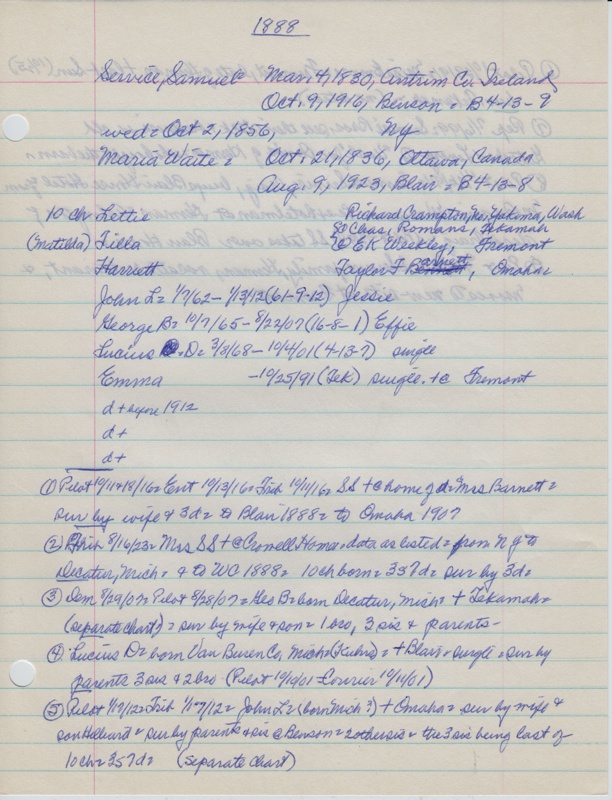 1888
Service, Samuel = Mar. 4, 1830, Antrim Co. Ireland
Oct. 9, 1916, Benson = B4-13-9
wed = Oct 2, 1856, NY
Maria Waite = Oct. 21, 1836, Ottawa, Canada
Aug. 9, 1923, Blair = B4-13-8
10 ch Lettie Richard Crampton, No. Yakima, Wash
(Matilda) Tilla Claas, Romans, Tekamah
② E K Weekley, Fremont
Harriett Taylor F Barnett, Omaha
John L = 1/7/62 - 1/13/12 (61-9-12) Jessie
George B = 10/7/65 - 8/22/07 (16-8-1) Effie
Lucius D = 3/8/68 - 10/4/01 (4-13-7) single
Emma - 10/25/91 (Tek) single. + @ Fremont
d + before 1912
d +
d +
① Pilot 10/11 & 18/16 = Ent 10/13/16 = Trib 10/11/16 = SS + @ home of d = Mrs Barnett =
sur by wife & 3d = to Blair 1888 = to Omaha 1907
② 8/16/23 = Mrs SS + @ Crowell Home = data as listed = from NY to
Decatur, Mich = & to WC 1888 = 10 ch born = 3s 7d = sur by 3d =
③ Dem 8/29/07 = Pilot 8/28/07 = Geo B = born Decatur, Mich = + Tekamah =
(separate chart) = sur by wife & son = 1 bro, 3 sis & parents -
④ Lucius D = born Van Buren Co, Mich = = + Blair = single = sur by
parents 3 sis & 2 bro (Pilot 10/10/01 = Courier 10/11/01)
⑤ Pilot 1/17/12 = Trib 1/17/12 = John L = (born Mich?) + Omaha = sur by wife &
son = sur by parents & sis @ Benson = 2 other sis = the 3 sis being last of
10 ch = 3s 7d = (separate chart)